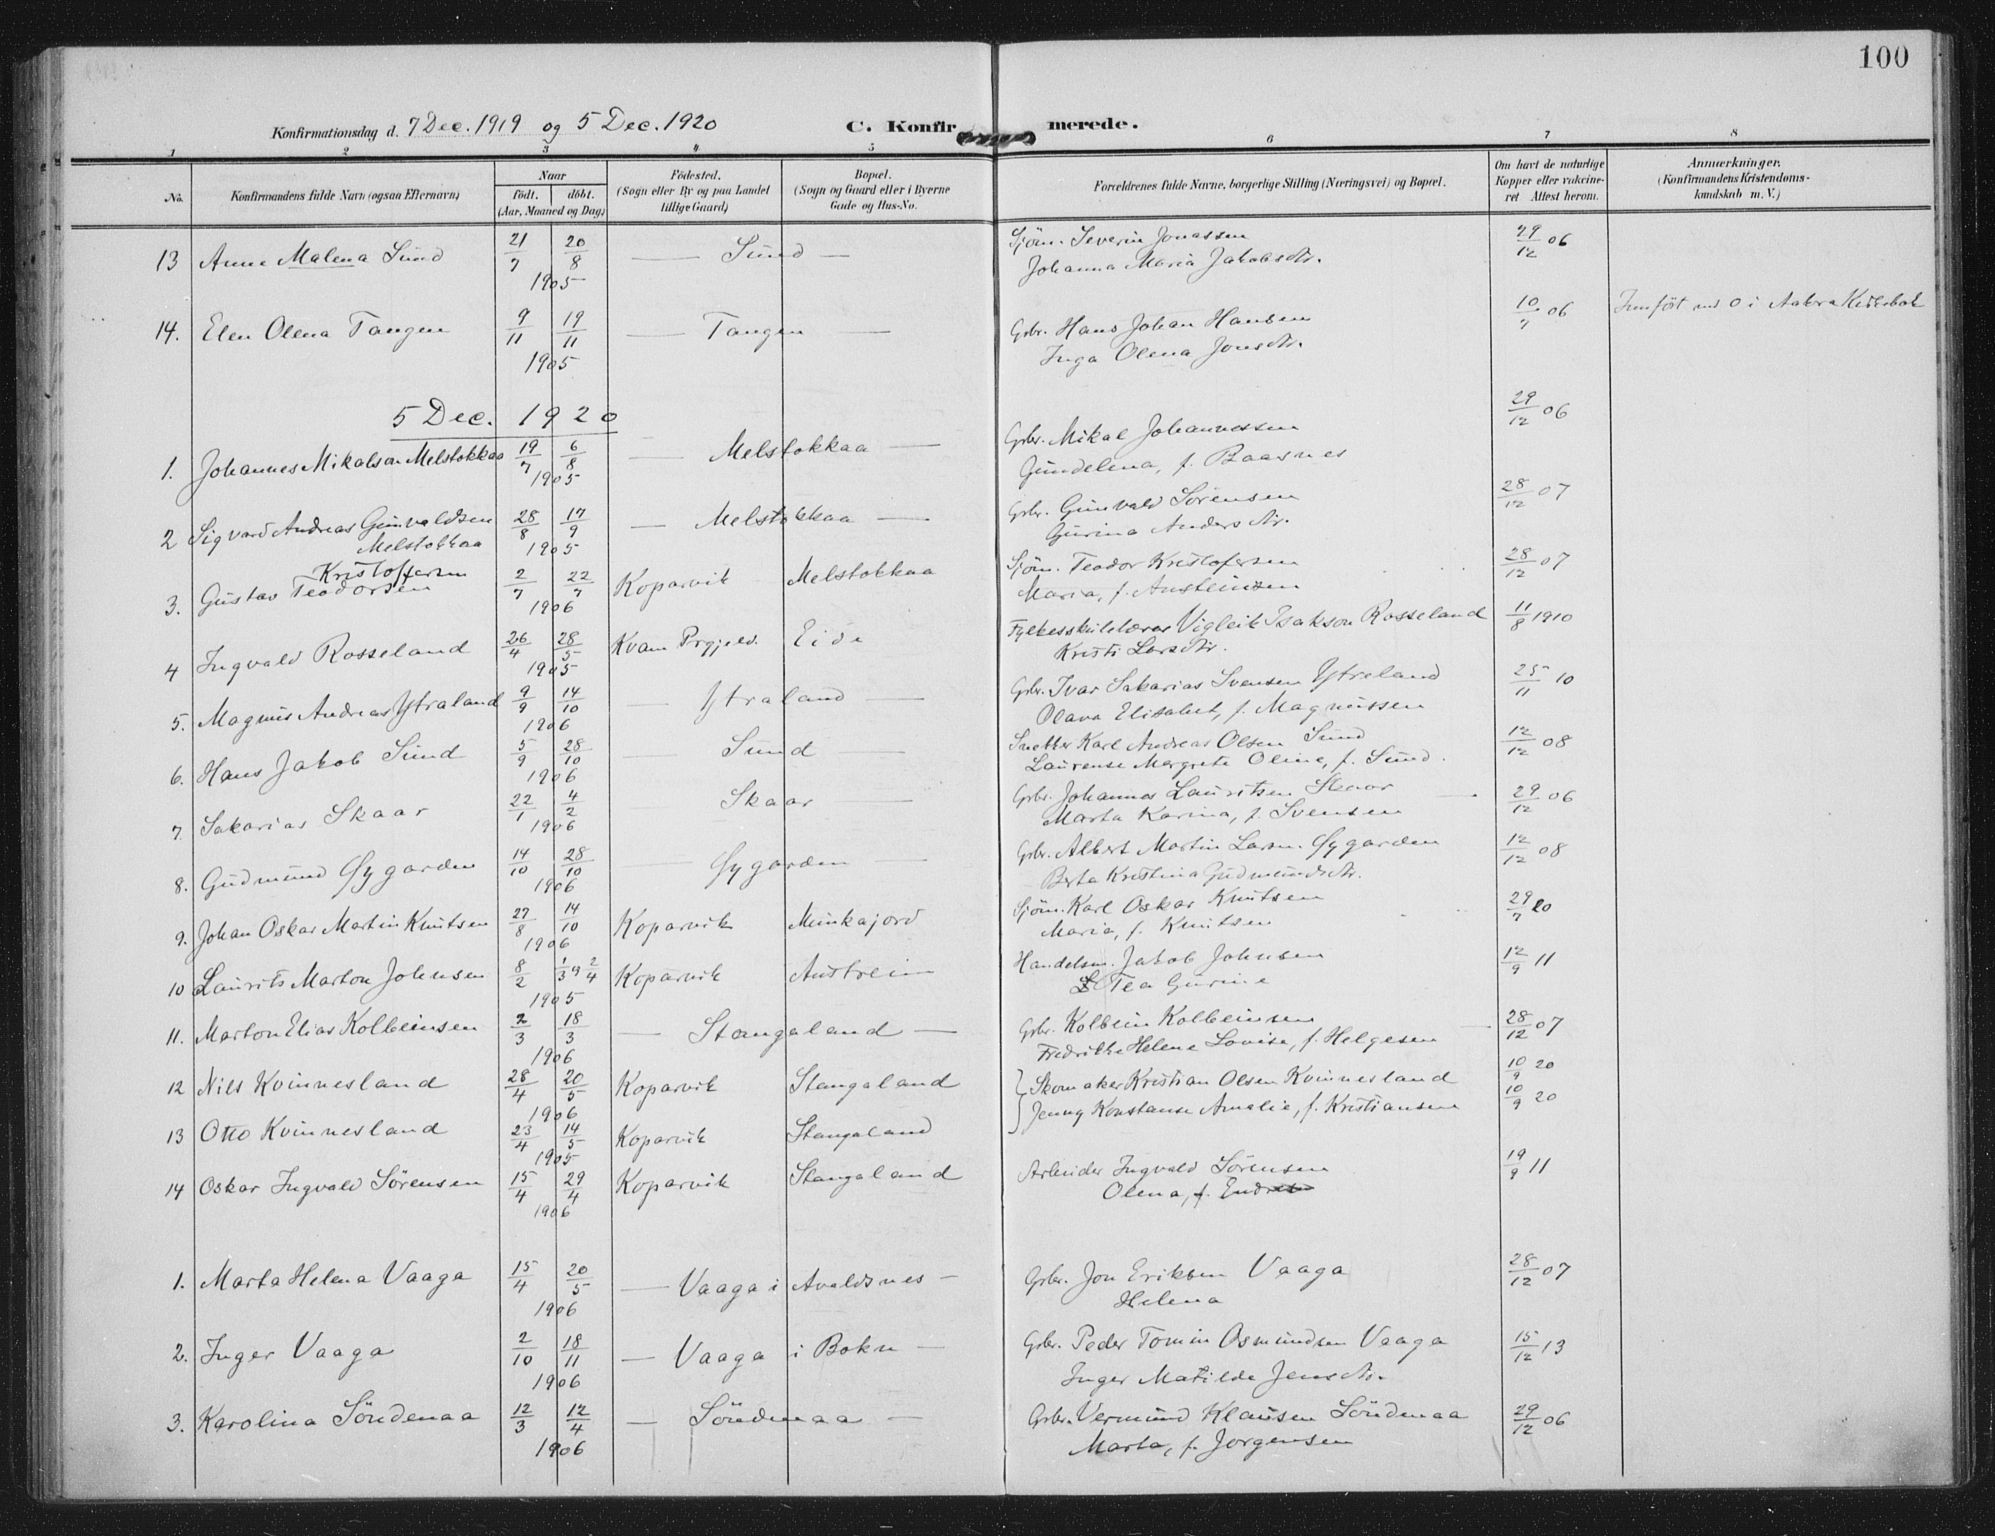 100
Konfirmationsdag d. 7 Dec. 1919 og 5 Dec. 1920 C. Konfirmerede.
1 2 3 4 5 6 7 8
No. Konfirmandens fulde Navn (ogsaa Efternavn) Naar født. døbt. (Aar, Maaned og Dag) Fødested. (Sogn eller By og paa Landet tillige Gaard) Bopæl. (Sogn og Gaard eller i Byerne Gade og Hus-No. Forældrenes fulde Navne, borgerlige Stilling (Næringsvei) og Bopæl. Om havt de naturlige Kopper eller vakcineret Attest herom. Anmærkninger. (Konfirmandens Kristendomskundskab m. V.)
13 Anne Malena Sund 21/7 20/8 1905 — Sund — Sjøm. Severin Jonassen 29/12 06
Johanna Maria Jakobsdtr.
14. Elen Olena Tangen 9/11 19/11 1905 — Tangen — Grbr. Hans Johan Hansen 10/7 06 i Aakra
Inga Olena Jonsdtr.
5 Dec. 1920
1. Johannes Mikalsen Melstokkaa 19/7 6/8 1905 — Melstokkaa — Grbr. Mikal Johannessen 29/12 06
Gundelena, f. Baasnes
2 Sigvard Andreas Gunvaldsen 28/8 17/9 1905 — Melstokkaa — Grbr. Gunvald Sørensen 28/12 07
Melstokkaa Gurina Andersdtr.
Kristoffersen
3. Gustav Teodorsen 2/7 22/7 1906 Koparvik Melstokkaa Sjøm. Teodor Kristofersen 28/12 07
Maria, f. Austeinsen
4 Ingvald Rosseland 26/4 28/5 1905 Kvam Prgjeld. Eide Fylkesskulelærar Vigleik Isakson Rosseland 11/8 1910
Kristi Larsdtr.
5. Magnus Andreas Ytraland 9/9 14/10 1906 — Ytraland — Grbr. Ivar Sakarias Svensen Ytreland 25/11 10
Olava Elisabet, f. Magnussen
6. Hans Jakob Sund 5/9 28/10 1906 — Sund — Karl Andreas Olsen Sund 12/12 08
Laurense Margrete Oline, f. Sund.
7. Sakarias Skaar 22/1 4/2 1906 Skaar — Grbr. Johannes Lauritsen 29/12 06
Marta Karina, f. Svensen
8. Gudmund Øygarden 14/10 28/10 1906 — Øygarden — Grbr. Albert Martin Larsn. Øygarden 12/12 08
Berta Kristina Gudmundsdtr.
9. Johan Oskar Martin Knutsen 27/8 14/10 1906 Koparvik Munkajord Sjøm. Karl Oskar Knutsen 29/7 20
Maria, f. Knutsen
10 Laurits Marton Johnsen 8/2 1/3 og 2/4 1905 Koparvik Austreim Handelsm. Jakob Johnsen 12/9 11
Tea Gurine
11. Marton Elias Kolbeinsen 2/3 18/3 1906 — Stangaland — Grbr. Kolbein Kolbeinsen 28/12 07
Fredrikke Helene Lovise, f. Helgesen
12 Nils Kvinnesland 28/4 20/5 1906 Koparvik Stangaland Skomaker Kristian Olsen Kvinnesland 10/9 20
Jenny Konstanse Amalie, f. Kristiansen 10/9 20
13 Otto Kvinnesland 23/4 14/5 1905 Koparvik Stangaland
14 Oskar Ingvald Sørensen 15/4 29/4 1906 Koparvik Stangaland Arbeider Ingvald Sørensen 19/9 11
Olena, f.
1. Marta Helena Vaaga 15/4 20/5 1906 — Vaaga i Avaldsnes — Grbr. Jon Eriksen Vaaga 28/12 07
Helena
2. Inger Vaaga 2/10 18/11 1906 — Vaaga i Bokn — Grbr. Peder Tomin Osmundsen Vaaga 15/12 13
Inger Matilde Jensdtr.
3. Karolina Söndenaa 12/3 12/4 1906 — Söndenaa — Grbr. Vermund Klausen Söndenaa 29/12 06
Marta, f. Jorgensen